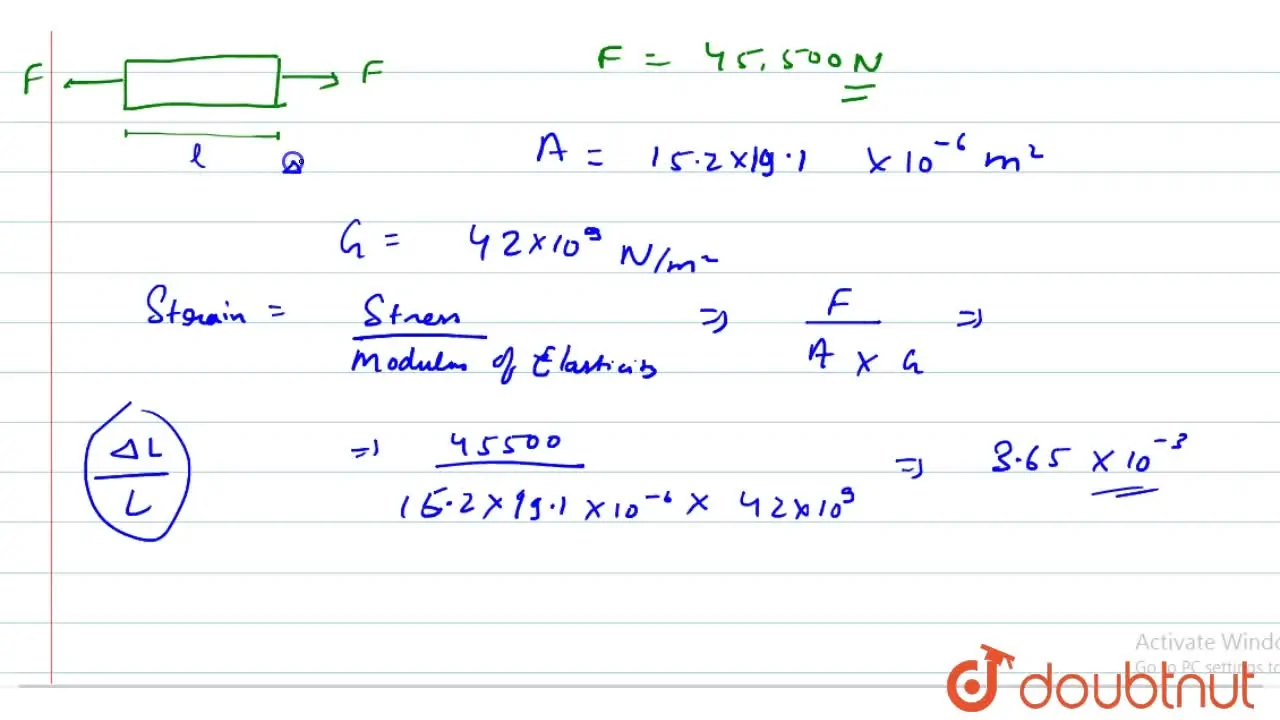 F F F = 45,500 N
l A = 15.2 × 19.1 × 10⁻⁶ m²
G = 42 × 10⁹ N/m²
Strain = Stress / Modulus of Elasticity ⇒ F / A × G ⇒
ΔL / L ⇒ 45500 / 15.2 × 19.1 × 10⁻⁶ × 42 × 10⁹ ⇒ 3.65 × 10⁻³
Activate Windo
Go to PC settings to
doubtnut